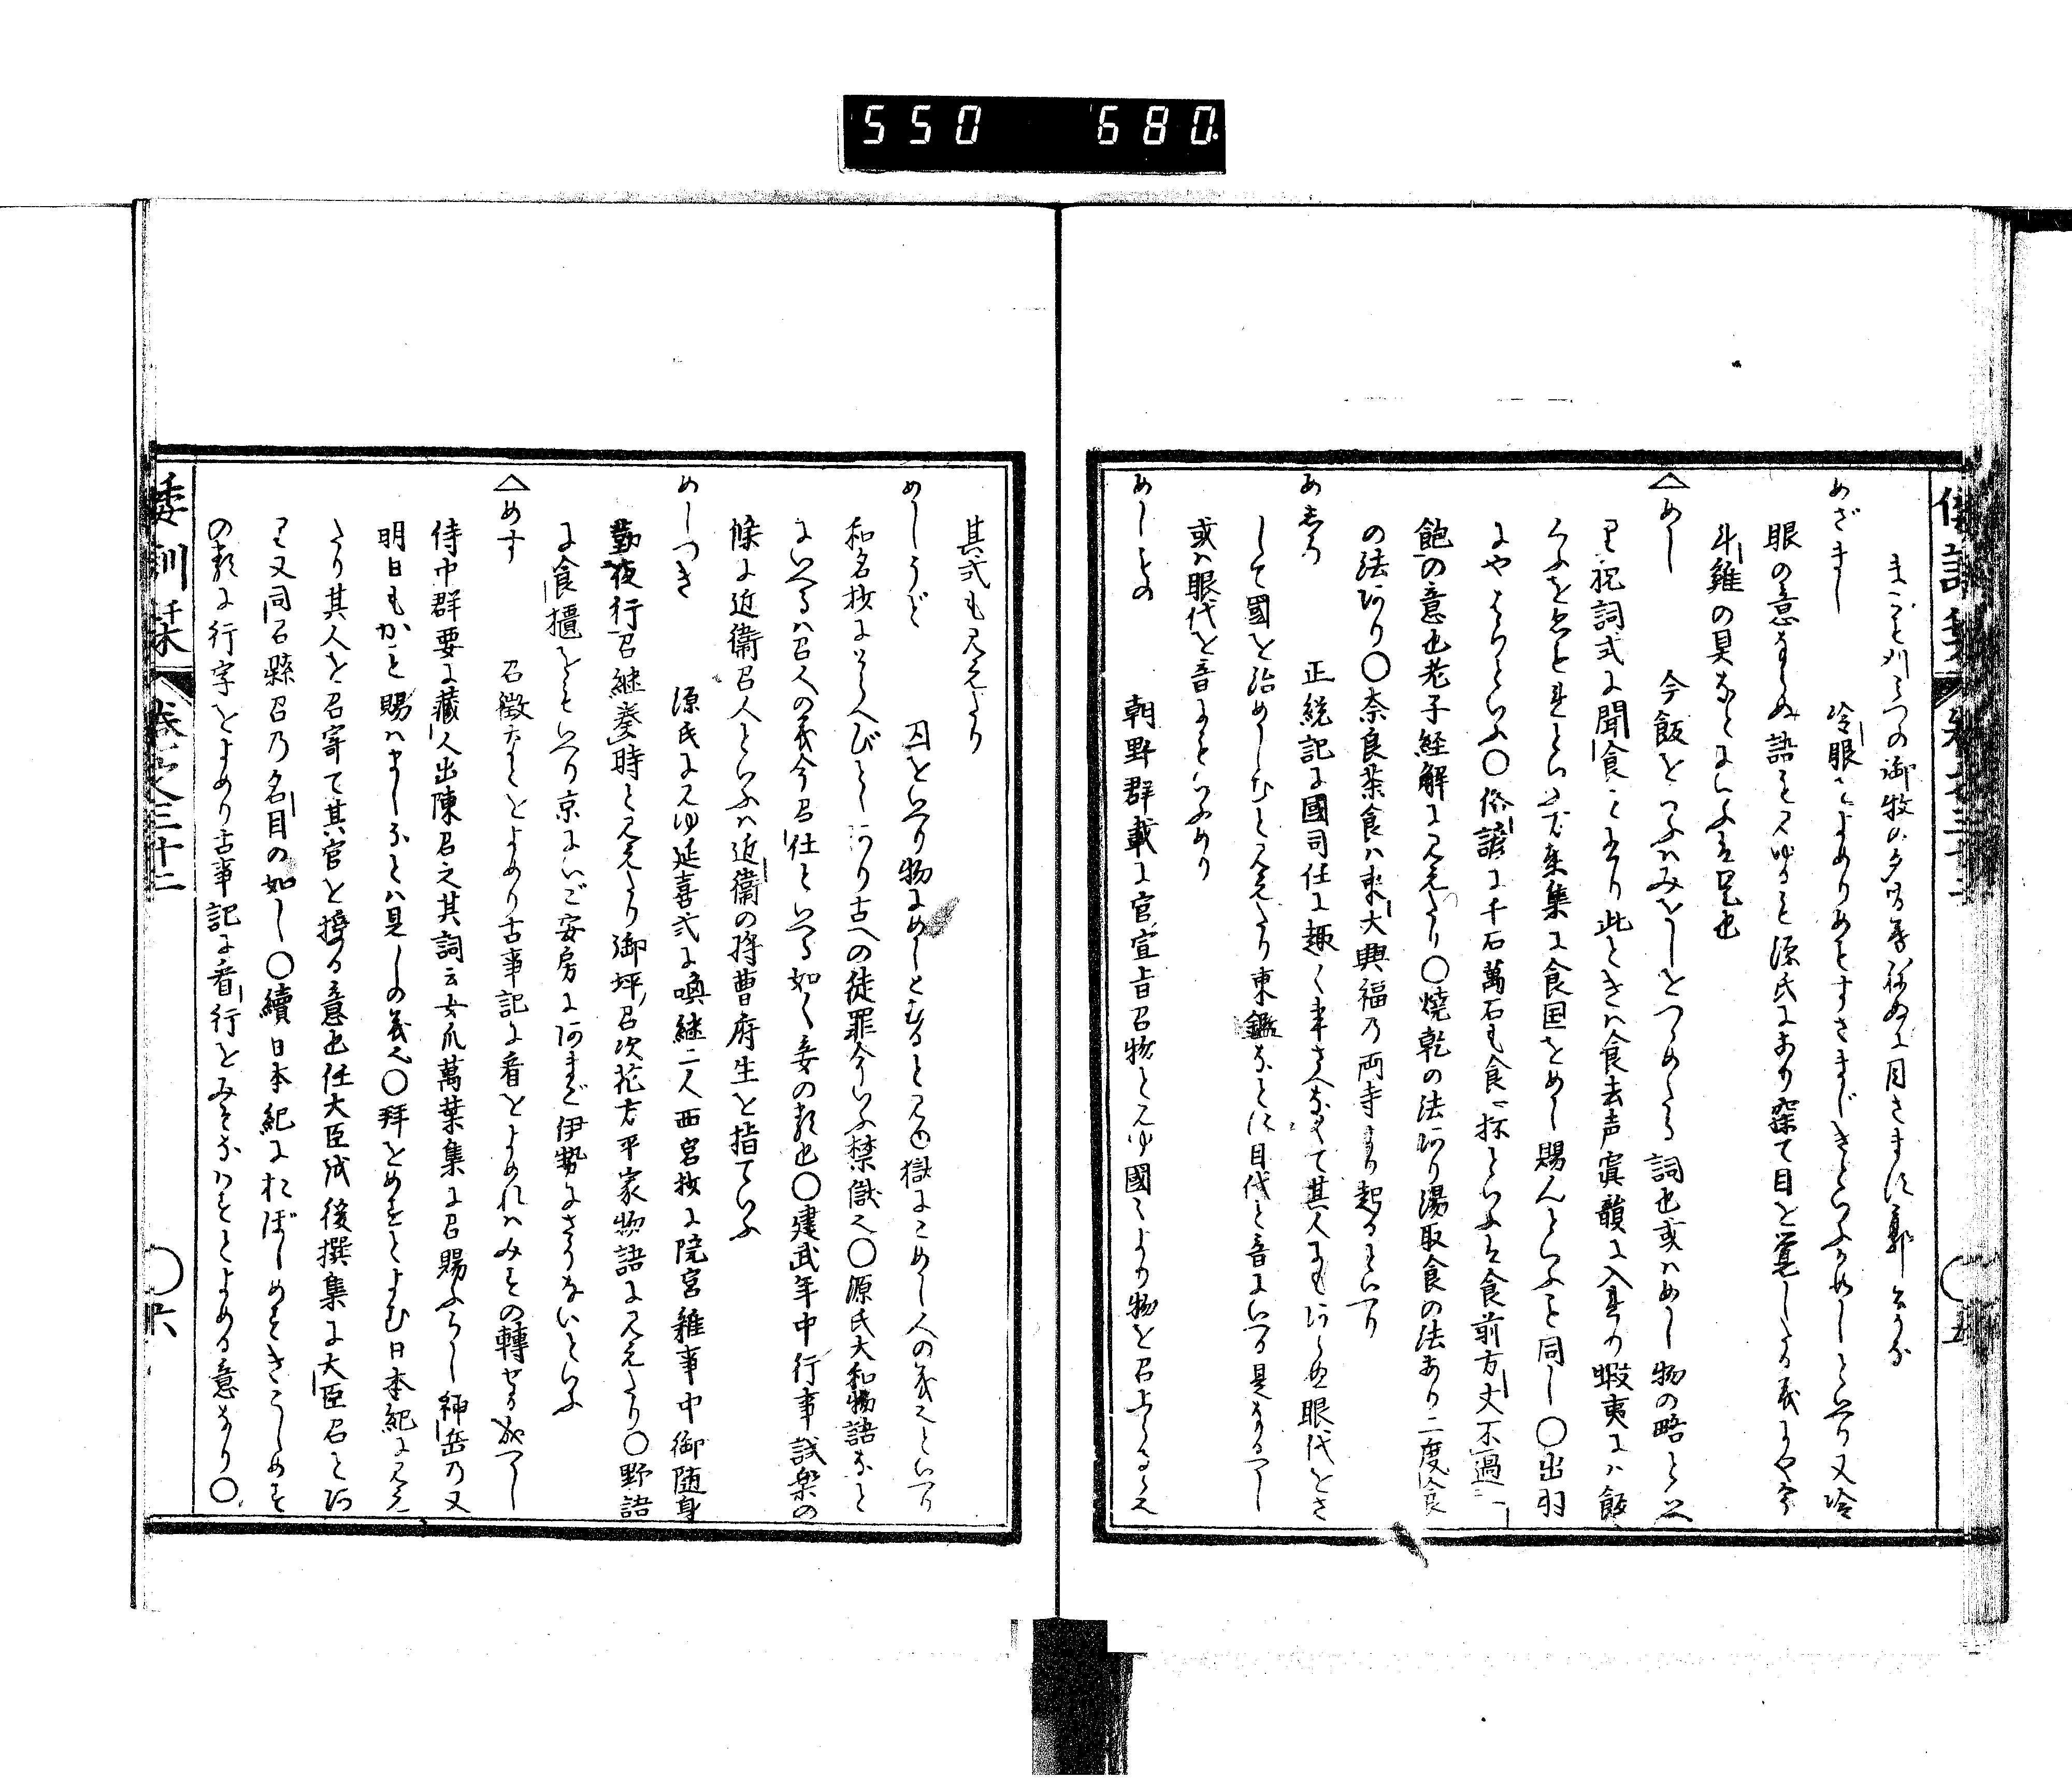 550 680
まこも刈みつの御牧の夕
めざまし 冷眼をよめりめをすさまじきといふかめしといへり又冷
眼の意ならぬ語も見ゆるも源氏にあり寐て目を覚したる義にや今
斗雞の具などにいふも是也
△めし 今飯をいふはみをしをつゞめたる詞也或はめし物の略といへ
り祝詞式に聞食と見えたり此ときは食去声寘韻に入れり蝦夷には飯
萬葉集に食国をめし賜んといふも同し○出羽
にやはらといふ○俗諺に千石萬石も食一杯といふは食前方丈不過一
飽の意也老子経解に見えたり○焼乾の法あり湯取食の法あり二度食
の法あり○奈良茶食は東大興福の両寺より起るといへり
めしろ 正統記に國司任に趣く事さへなくて其人にもあらぬ眼代をさ
して國を治めしむと見えたり東鑑などに目代と音にいへる是なるべし
或は眼代を音にもいふめり
めしもの 朝野群載に官宣旨召物と見ゆ國々よりの物を召上らるゝ也
其式も見えたり
めしうど 囚をいへり物にめしとむると見え獄にこめし人の義也といへり
和名抄にとらへびとゝあり古への徒罪今いふ禁獄也○源氏大和物語などに
いへるは召人の義今召仕といへる如く妾の類也○建武年中行事試楽の
條に近衛召人といふは近衛の将曹府生を指ていふ
めしつき 源氏に見ゆ延喜式に喚継二人西宮抄に院宮雑事中御随身
勤夜行召継奏時と見えたり御坪召次花方平家物語に見えたり○野語
に食櫃をもいへり京にいご安房にあまご伊勢にさうないといふ
△めす 召徴などをよめり古事記に看をよめればみすの轉せる成べし
侍中群要に藏人出陳召之其詞云女爪萬葉集に召賜ふらし神岳乃又
明日もかも賜はましなどは見しの義也○拜をめすとよむ日本紀に見え
たり其人を召寄て其官を授る意也任大臣式後撰集に大臣召とあ
り又同召縣召乃名目の如し○續日本紀におぼしめすきこしめす
の類に行字をよめり古事記に看行をみそなはすとよめる意なり○
倭訓栞 巻之三十二 ○六